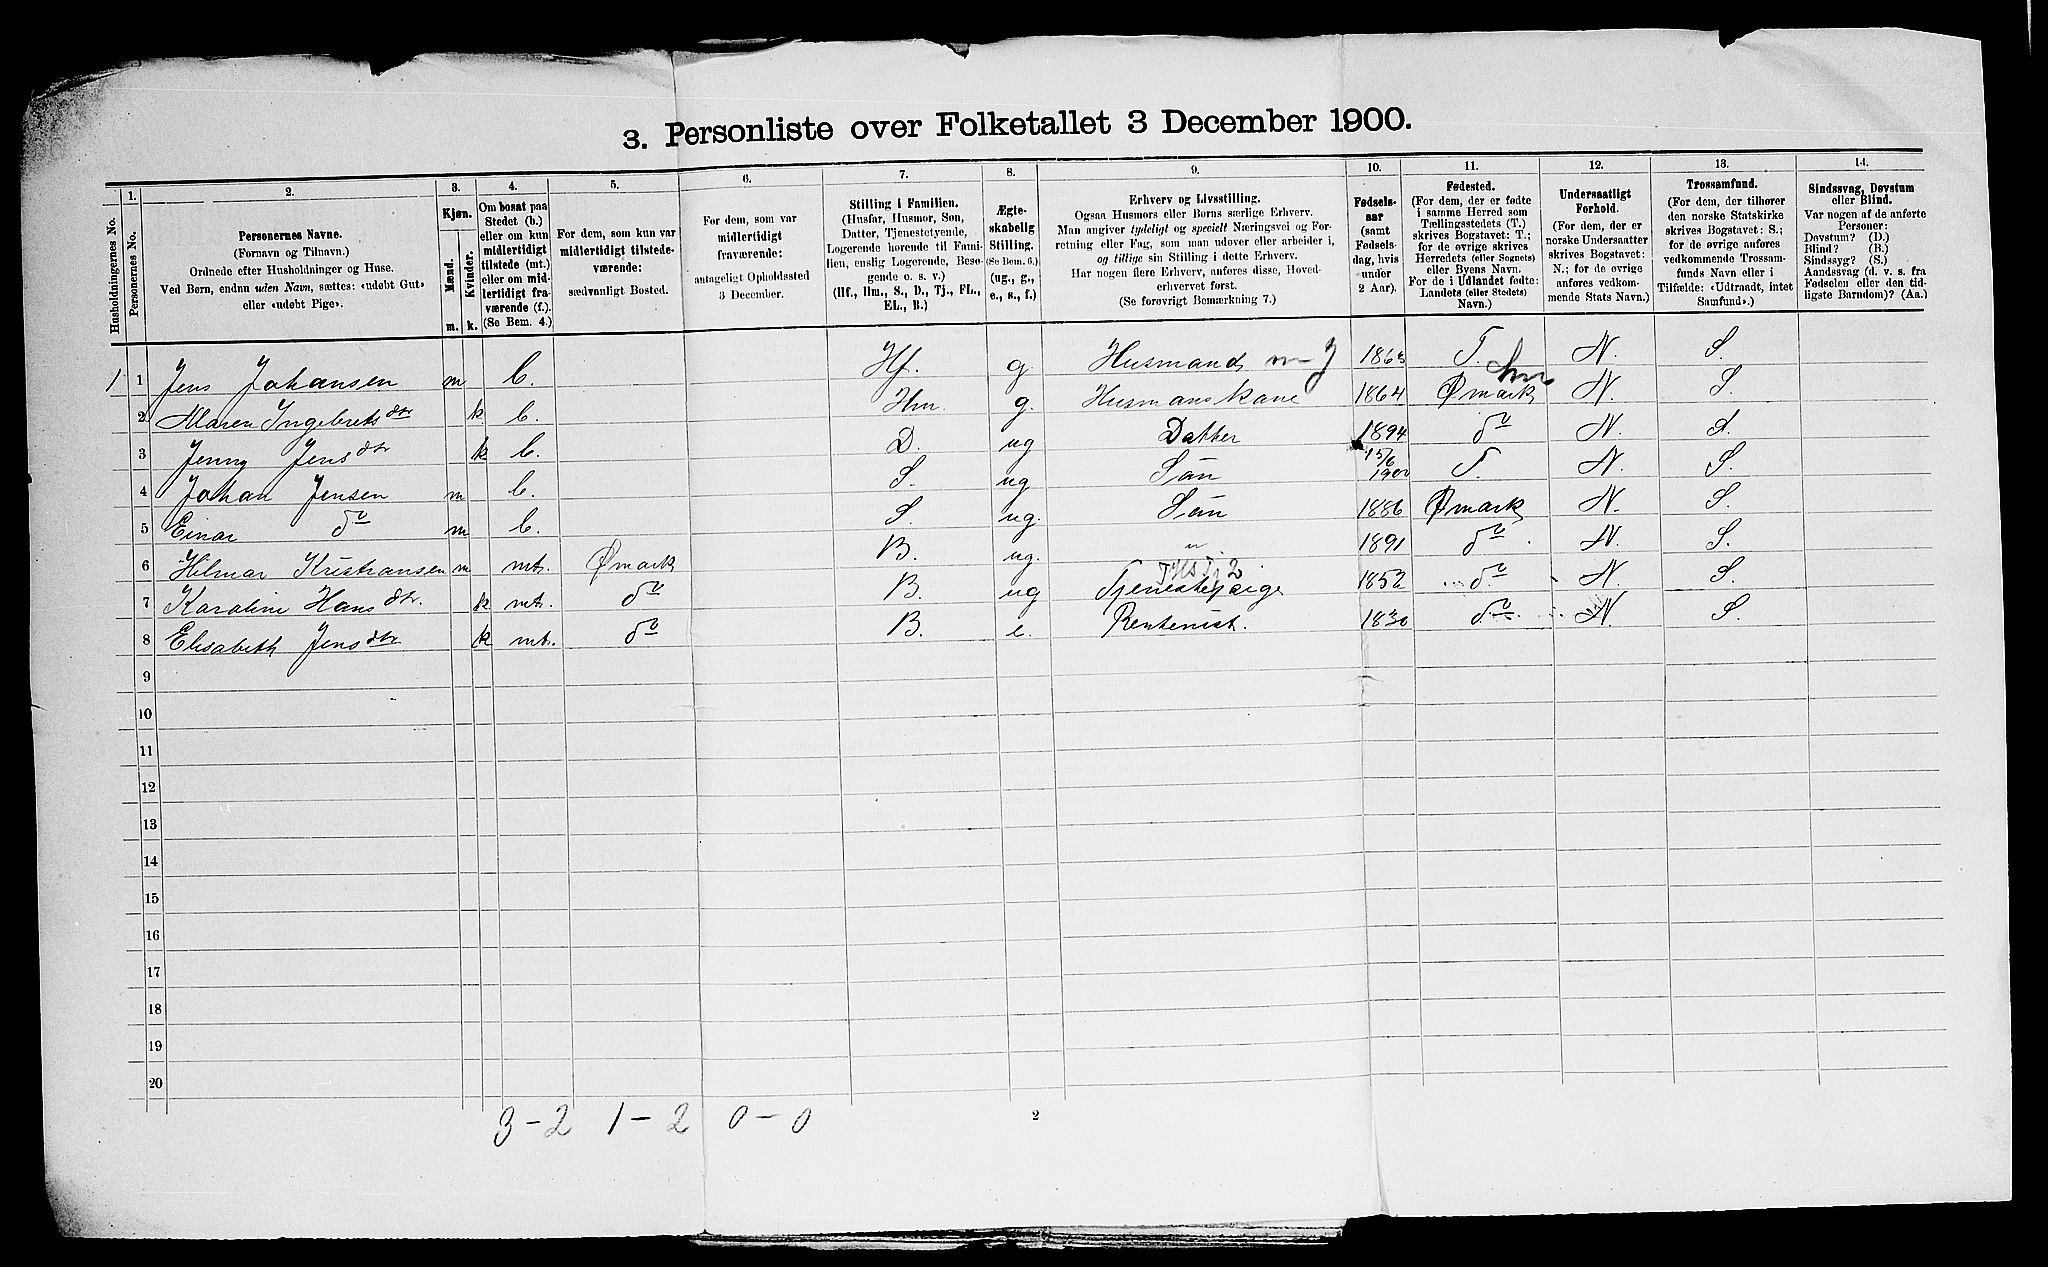 3. Personliste over Folketallet 3 December 1900.
1. 2. 3. 4. 5. 6. 7. 8. 9. 10. 11. 12. 13. 14.
Husholdningernes No.
Personernes No.
Personernes Navne.
(Fornavn og Tilnavn.)
Ordnede efter Husholdninger og Huse.
Ved Børn, endnu uden Navn, sættes: «udøbt Gut»
eller «udøbt Pige».
Kjøn.
Mænd.
Kvinder.
m. k.
Om bosat paa
Stedet (b.)
eller om kun
midlertidigt
tilstede (mt.)
eller om mid-
lertidigt fra-
værende (f.).
(Se Bem. 4.)
For dem, som kun var
midlertidigt tilstede-
værende:
sædvanligt Bosted.
For dem, som var
midlertidigt
fraværende:
antageligt Opholdssted
3 December.
Stilling i Familien.
(Husfar, Husmor, Søn,
Datter, Tjenestetyende,
Logerende hørende til Fami-
lien, enslig Logerende, Besø-
gende o. s. v.)
(Hf., Hm., S., D., Tj., FL.,
EL., B.)
Ægte-
skabelig
Stilling.
(Se Bem. 6.)
(ug., g.,
e., s., f.)
Erhverv og Livsstilling.
Ogsaa Husmors eller Børns særlige Erhverv.
Man angiver tydeligt og specielt Næringsvei og For-
retning eller Fag, som man udøver eller arbeider i,
og tillige sin Stilling i dette Erhverv.
Har nogen flere Erhverv, anføres disse, Hoved-
erhvervet først.
(Se forøvrigt Bemærkning 7.)
Fødsels-
aar
(samt
Fødsels-
dag, hvis
under
2 Aar).
Fødested.
(For dem, der er fødte
i samme Herred som
Tællingsstedets (T.)
skrives Bogstavet: T.;
for de øvrige skrives
Herredets (eller Sognets)
eller Byens Navn.
For de i Udlandet fødte:
Landets (eller Stedets)
Navn.)
Undersaatligt
Forhold.
(For dem, der er
norske Undersaatter
skrives Bogstavet:
N.; for de øvrige
anføres vedkom-
mende Stats Navn.)
Trossamfund.
(For dem, der tilhører
den norske Statskirke
skrives Bogstavet: S.;
for de øvrige anføres
vedkommende Trossam-
funds Navn eller i
Tilfælde: «Udtraadt, intet
Samfund».)
Sindssvag, Døvstum
eller Blind.
Var nogen af de anførte
Personer:
Døvstum? (D.)
Blind? (B.)
Sindssyg? (S.)
Aandssvag (d. v. s. fra
Fødselen eller den tid-
ligste Barndom)? (Aa.)
1 1 Jens Johansen m b. Hf. g. Husmand m J 1863 T. N. S.
2 Maren Ingebretsdtr k b. Hm. g. Husmanskone 1864 Ømark N. S.
3 Jenny Jensdtr k b. D. ug Datter 1894 do N. S.
4 Johan Jensen m b. S. ug Søn 15/6 1900 T. N. S.
5 Einar do m b. S. ug. Søn 1886 Ømark N. S.
6 Hilmar Kristiansen m mt. Ømark B. ug. " 1891 do N. S.
7 Karoline Hansdtr. k mt. do B. ug Tjenestepige 1852 do N. S.
8 Elisabeth Jensdtr k mt. do B. e. Rentenist. 1830 do N. S.
9
10
11
12
13
14
15
16
17
18
19
20
3-2 1-2 0-0
2